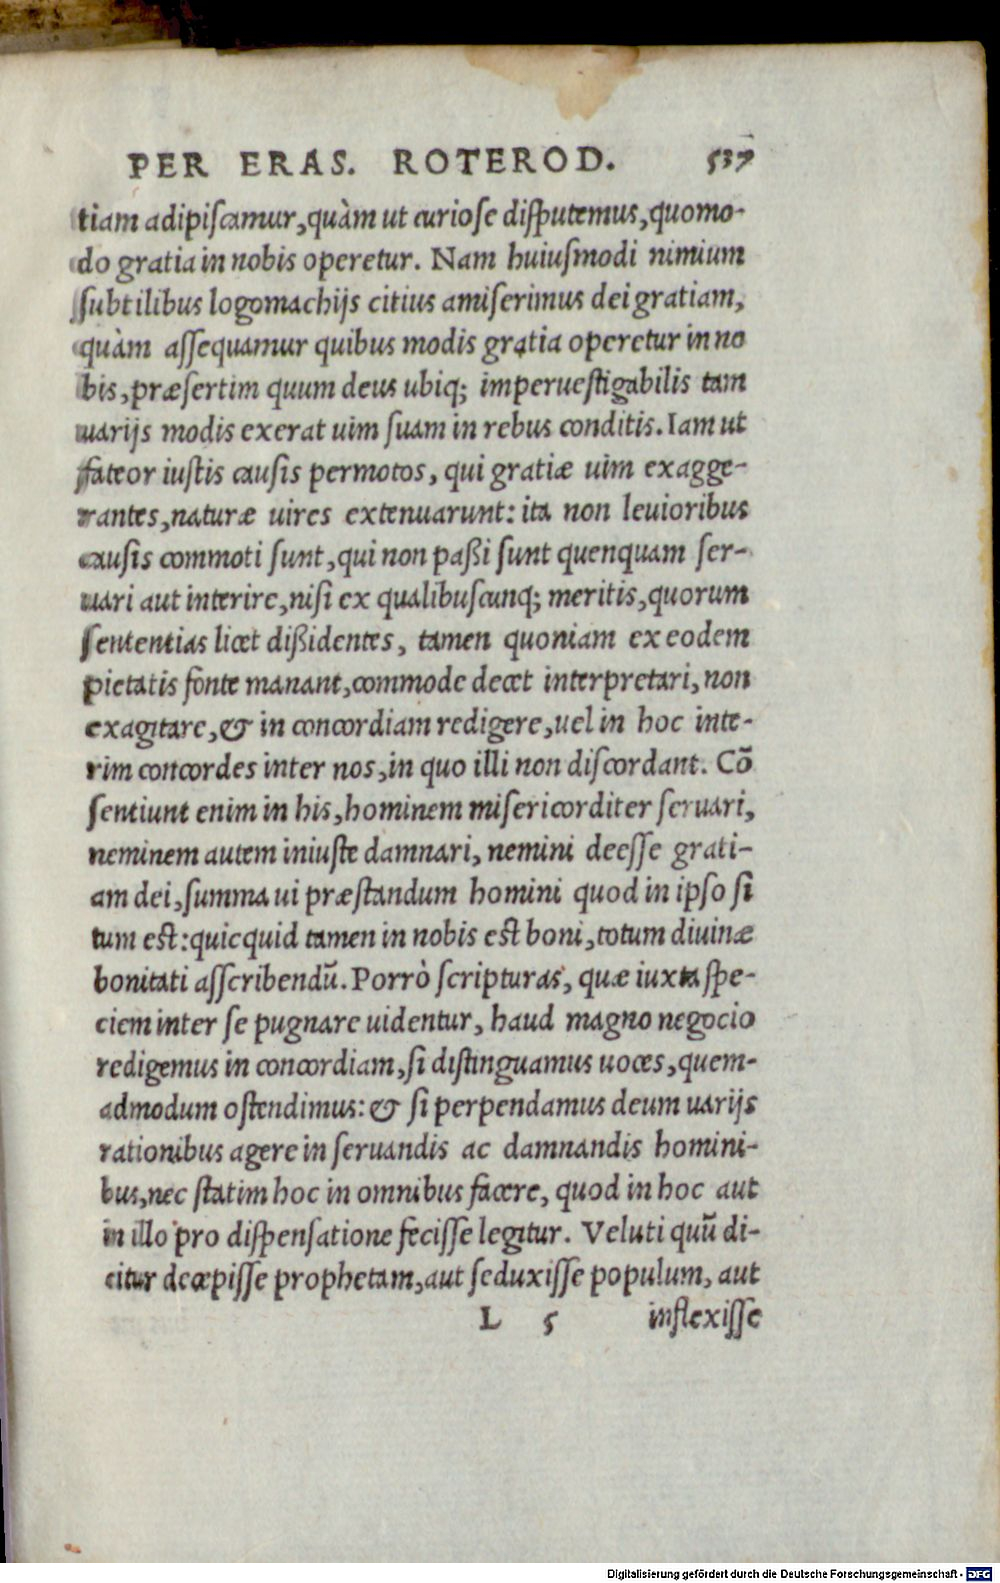 PER ERAS. ROTEROD. 537
tiam adipiſcamur, quàm ut curioſe diſputemus, quomo-
do gratia in nobis operetur. Nam huiuſmodi nimium
ſubtilibus logomachijs citius amiſerimus dei gratiam,
quàm aſſequamur quibus modis gratia operetur in no
bis, præſertim quum deus ubiq; imperueſtigabilis tam
uarijs modis exerat uim ſuam in rebus conditis. Iam ut
fateor iuſtis cauſis permotos, qui gratiæ uim exagge-
rantes, naturæ uires extenuarunt: ita non leuioribus
cauſis commoti ſunt, qui non paßi ſunt quenquam ſer-
uari aut interire, niſi ex qualibuſcunq; meritis, quorum
ſententias licet dißidentes, tamen quoniam ex eodem
pietatis fonte manant, commode decet interpretari, non
exagitare, & in concordiam redigere, uel in hoc inte-
rim concordes inter nos, in quo illi non diſcordant. Cō
ſentiunt enim in his, hominem miſericorditer ſeruari,
neminem autem iniuſte damnari, nemini deeſſe grati-
am dei, ſumma ui præſtandum homini quod in ipſo ſi
tum eſt: quicquid tamen in nobis eſt boni, totum diuinæ
bonitati aſſcribendū. Porrò ſcripturas, quæ iuxta ſpe-
ciem inter ſe pugnare uidentur, haud magno negocio
redigemus in concordiam, ſi diſtinguamus uoces, quem-
admodum oſtendimus: & ſi perpendamus deum uarijs
rationibus agere in ſeruandis ac damnandis homini-
bus, nec ſtatim hoc in omnibus facere, quod in hoc aut
in illo pro diſpenſatione feciſſe legitur. Veluti quū di-
citur decepiſſe prophetam, aut ſeduxiſſe populum, aut
L 5 inflexiſſe
Digitalisierung gefördert durch die Deutsche Forschungsgemeinschaft - DFG